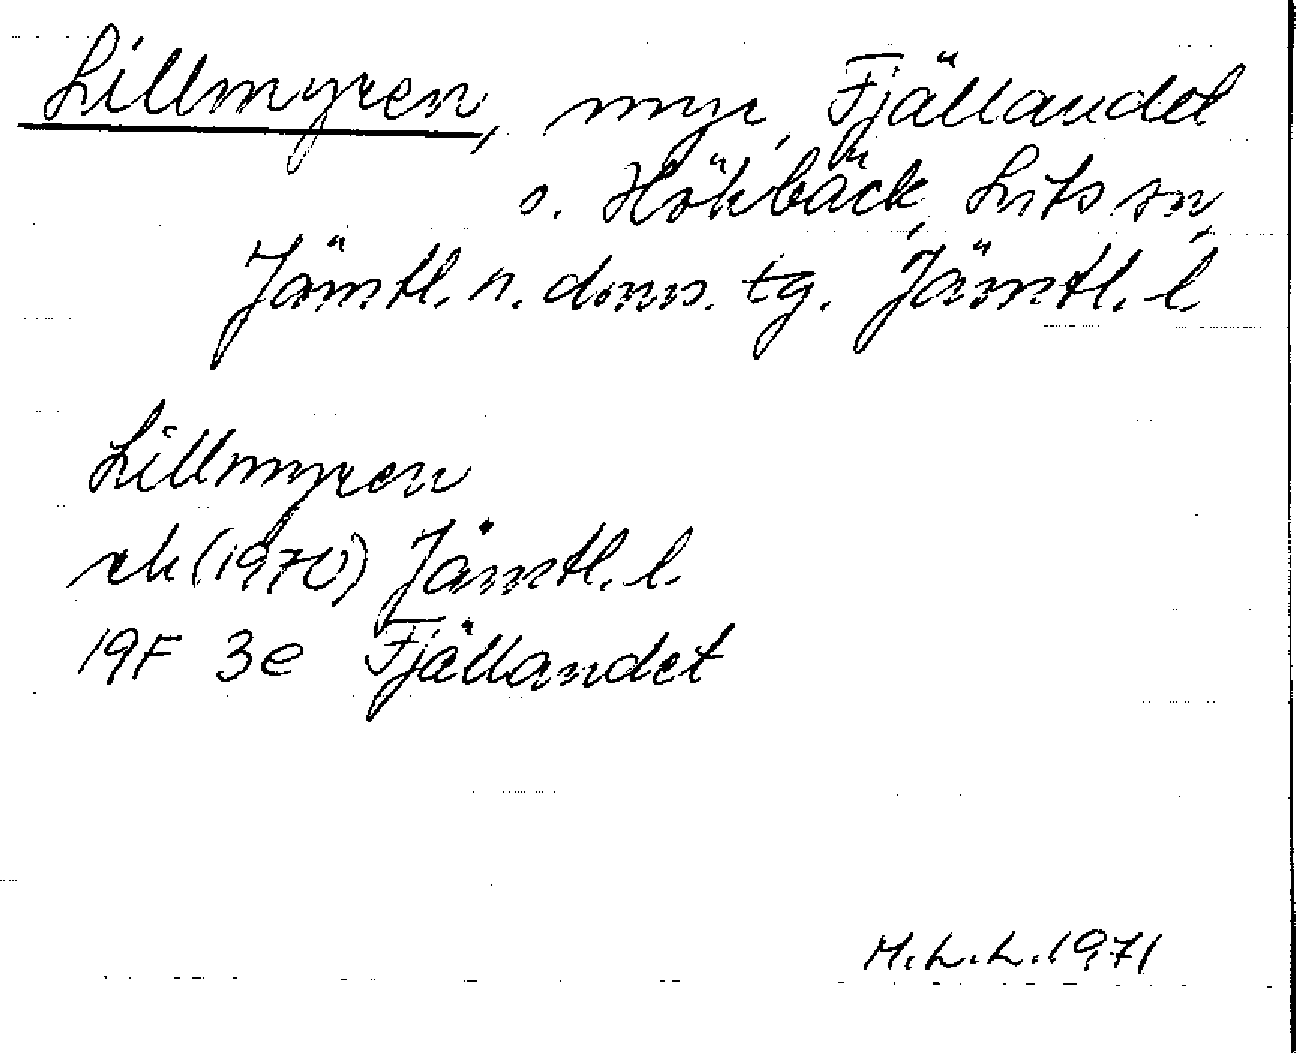 Lillmyren, myr, Fjällandet
o. Hökbäck, Lits sn,
Jämtl. n. doms. tg. Jämtl. l.
Lillmyren
rk (1970) Jämtl. l.
19F 3e Fjällandet
M.L.L. 1971